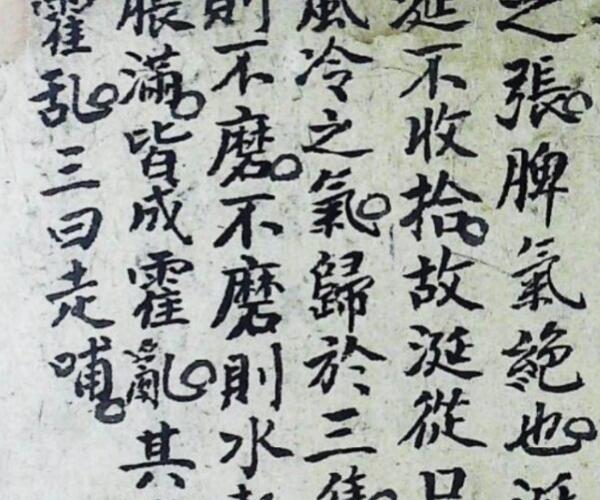 之張。脾氣絕也。
涎不收拾。故涎從口
風冷之氣。歸於三焦。
則不磨。不磨則水
脹滿。皆成霍亂。其
霍乱。三曰走哺。